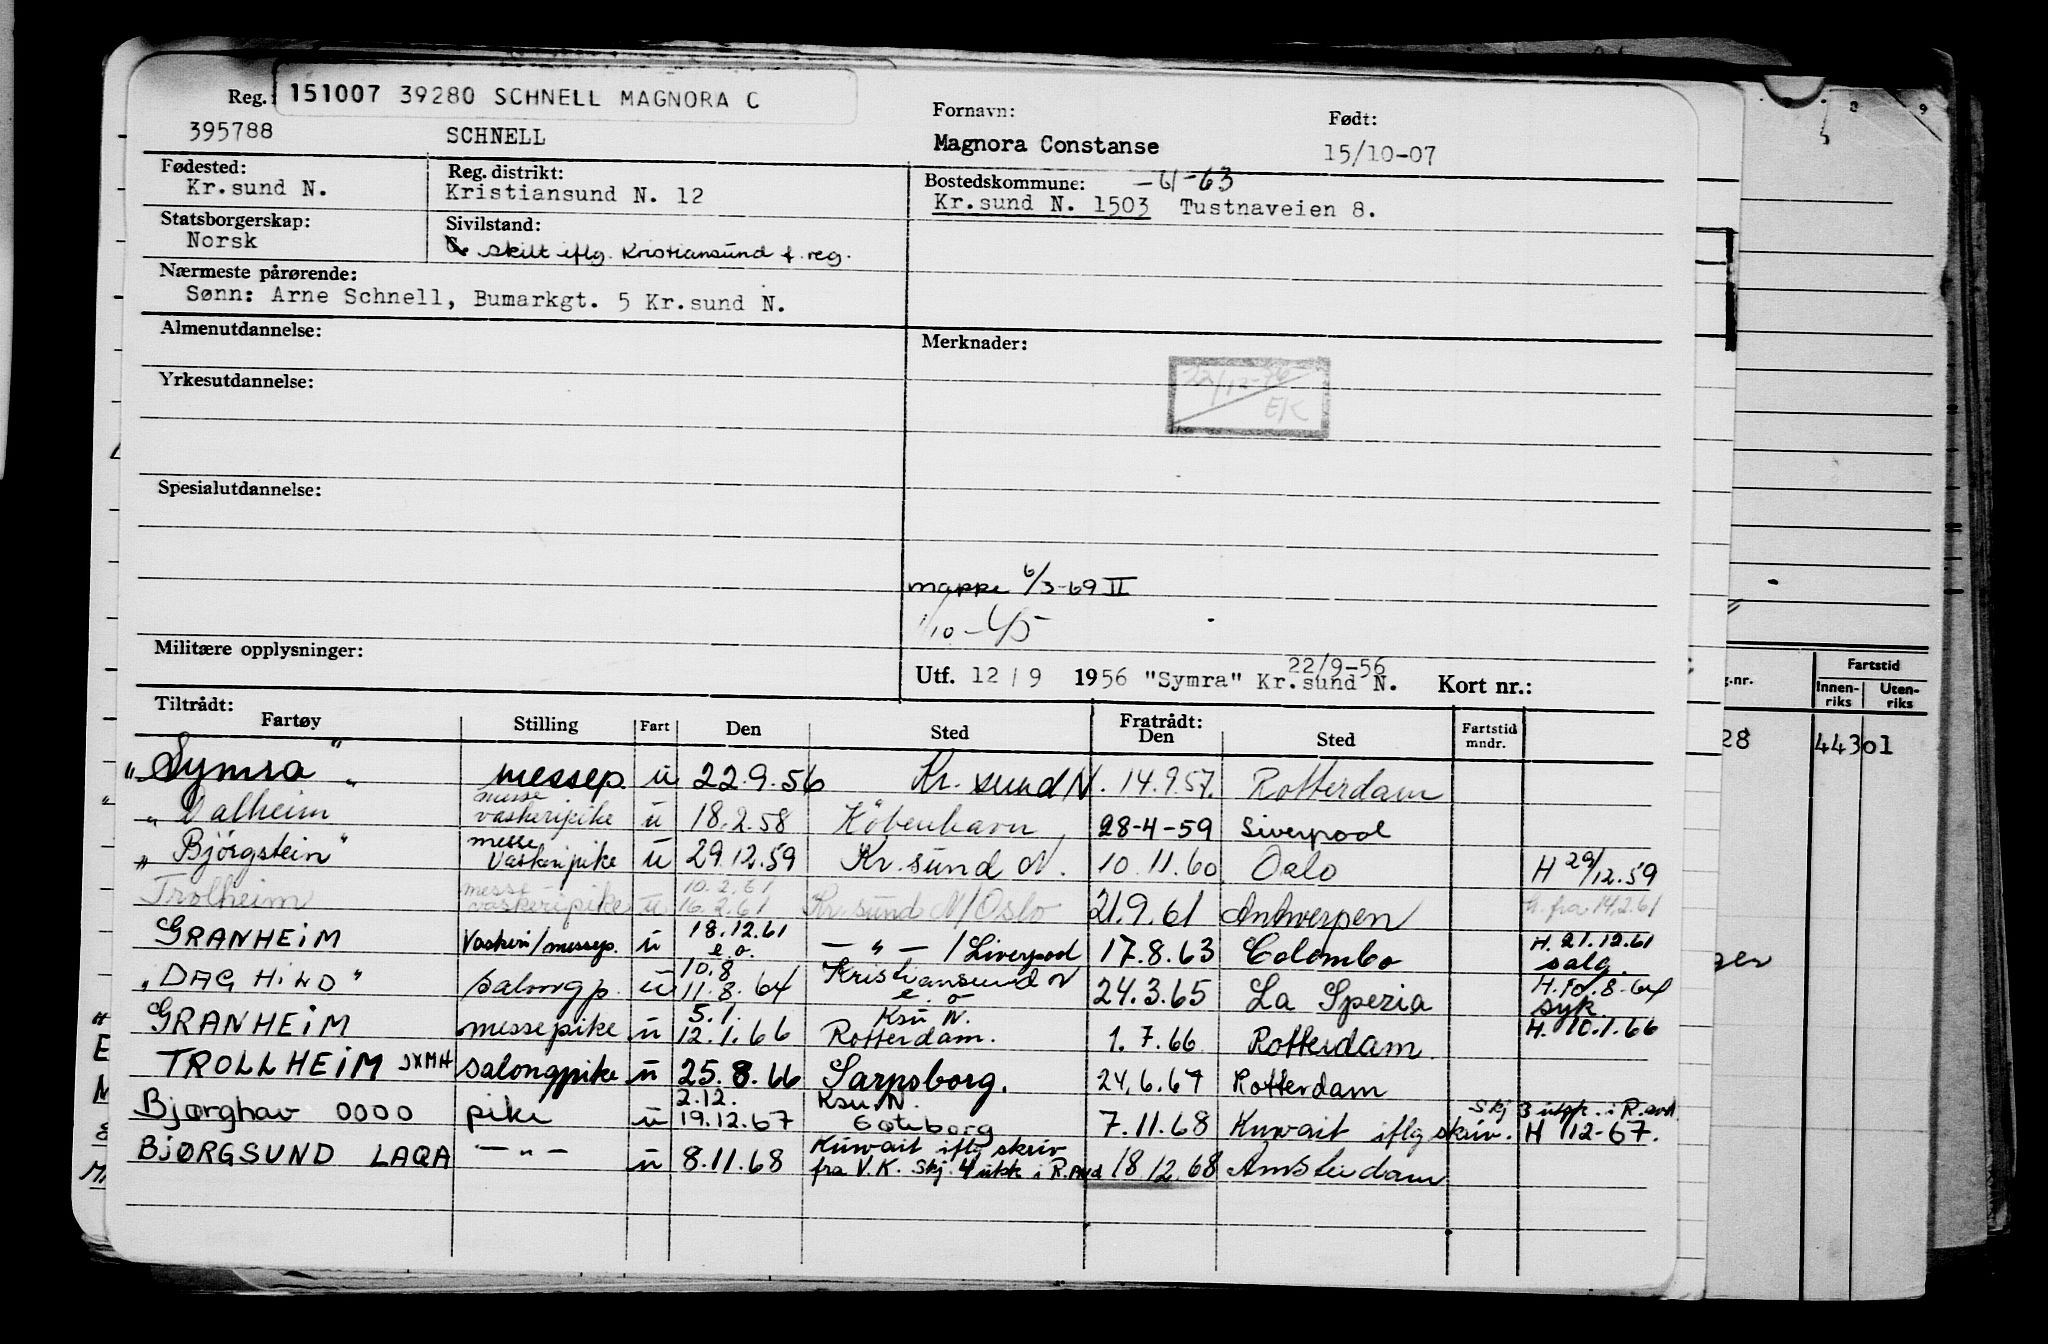 Reg.: 151007 39280 SCHNELL MAGNORA C
Fornavn: Født:
395788 SCHNELL Magnora Constanse 15/10-07
Fødested: Reg. distrikt: Bostedskommune: -61-63
Kr.sund N. Kristiansund N. 12 Kr.sund N. 1503 Tustnaveien 8.
Statsborgerskap: Sivilstand:
Norsk skilt iflg. Kristiansund f. reg.
Nærmeste pårørende:
Sønn: Arne Schnell, Bumarkgt. 5 Kr.sund N.
Almenutdannelse: Merknader:
22/12-86
EK
Yrkesutdannelse:
Spesialutdannelse:
mappe 6/3-69 II
1/10-65
Militære opplysninger:
22/9-56
Utf. 12/9 1956 "Symra" Kr.sund N. Kort nr.:
Tiltrådt: Fratrådt:
Fartøy Stilling Fart Den Sted Den Sted Fartstid mndr.
"Symra" messep. u 22.9.56 Kr. sund N. 14.9.57. Rotterdam
messe
"Dalheim" vaskeripike u 18.2.58 København 28-4-59 Liverpool
messe
"Bjørgstein" vaskeripike u 29.12.59 Kr. sund N. 10.11.60 Oslo H 29/12.59
messe- 10.2.61
Trolheim vaskeripike u. 16.2.61 Kr.sund N/Oslo 21.9.61 Antwerpen h. fra 14.2.61
18.12.61
GRANHEIM Vaskeri/messep. u e.o. — " — /Liverpool 17.8.63 Colombo H. 21.12.61
salg.
10.8 Kristiansund N
"DAG HILD" salongp. u 11.8.64 e. o 24.3.65 La Spezia H. 10.8-64
syk.
5.1. Ksu N.
GRANHEIM messepike u 12.1.66 Rotterdam. 1.7.66 Rotterdam H. 10.1.66
TROLLHEIM JXMH salongpike u 25.8.66 Sarpsborg. 24.6.67 Rotterdam
2.12. Ksu. N. Skj 3 utsk. i R.avd
Bjørghav OOOO pike u 19.12.67 Gøteborg 7.11.68 Kuwait iflg skriv. H 12-67.
Kuwait iflg skriv
BJØRGSUND LAQA — " — u 8.11.68 fra V.K. Skj. 4 utsk i R.Avd 18.12.68 Amsterdam
8 9
g.nr. Fartstid
Innen-riks Uten-riks
28 443 01
ger